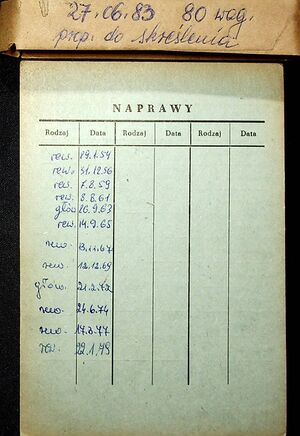 27.06.83 80 wag.
prop. do skreślenia
NAPRAWY
Rodzaj Data Rodzaj Data Rodzaj Data
rew. 29.1.54
rew. 31.12.56
rew. 7.8.59
rew. 8.8.61
głów. 26.9.63
rew. 14.9.65
rew. 13.11.67
rew. 12.12.69
głów. 21.2.72
rew. 24.6.74
rew. 17.3.77
rew. 22.1.79